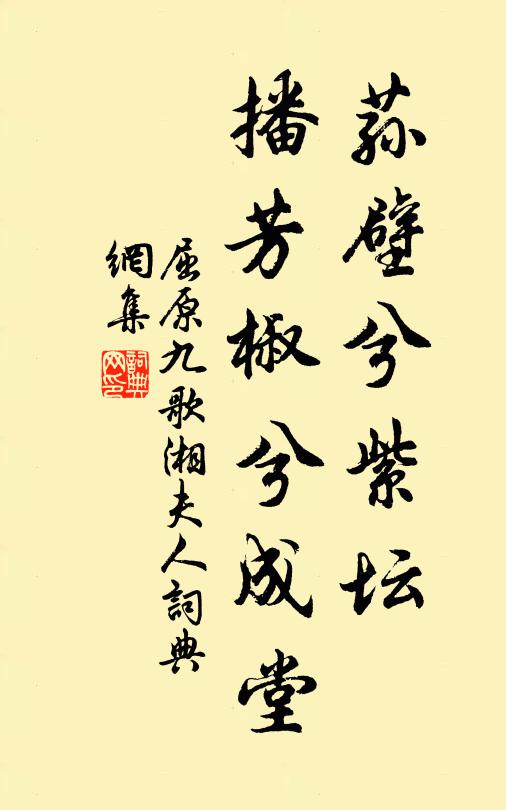 荪壁兮紫坛
播芳椒兮成堂
屈原九歌湘夫人詞典
網集
詞典
网印